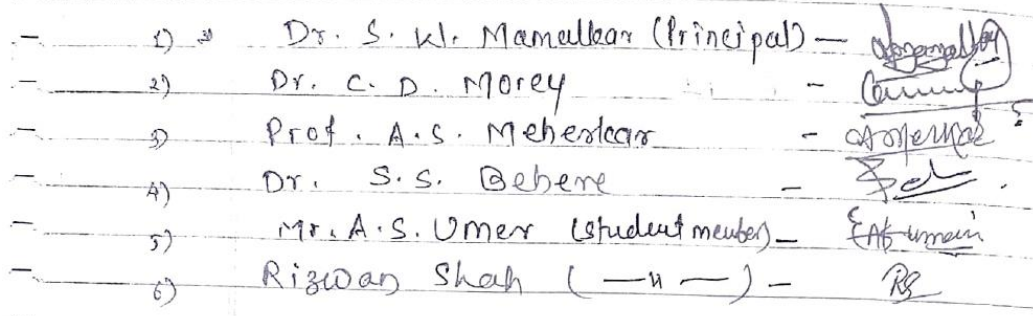 1) Dr. S. W. Mamalkar (Principal) –
2) Dr. C. D. Morey –
3) Prof. A.S. Meherkar –
4) Dr. S.S. Bebere –
5) Mr. A.S. Umer (student member) –
6) Rizwan Shah ( —〃— ) – RS